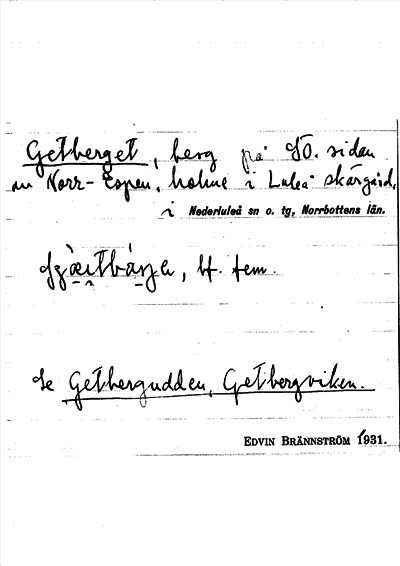 Getberget, berg på SO. sidan
av Norr-Espen, holme i Luleå skärgård,
i Nederluleå sn o. tg, Norrbottens län.
bf. fem.
Se Getbergudden, Getbergviken.
EDVIN BRÄNNSTRÖM 1931.